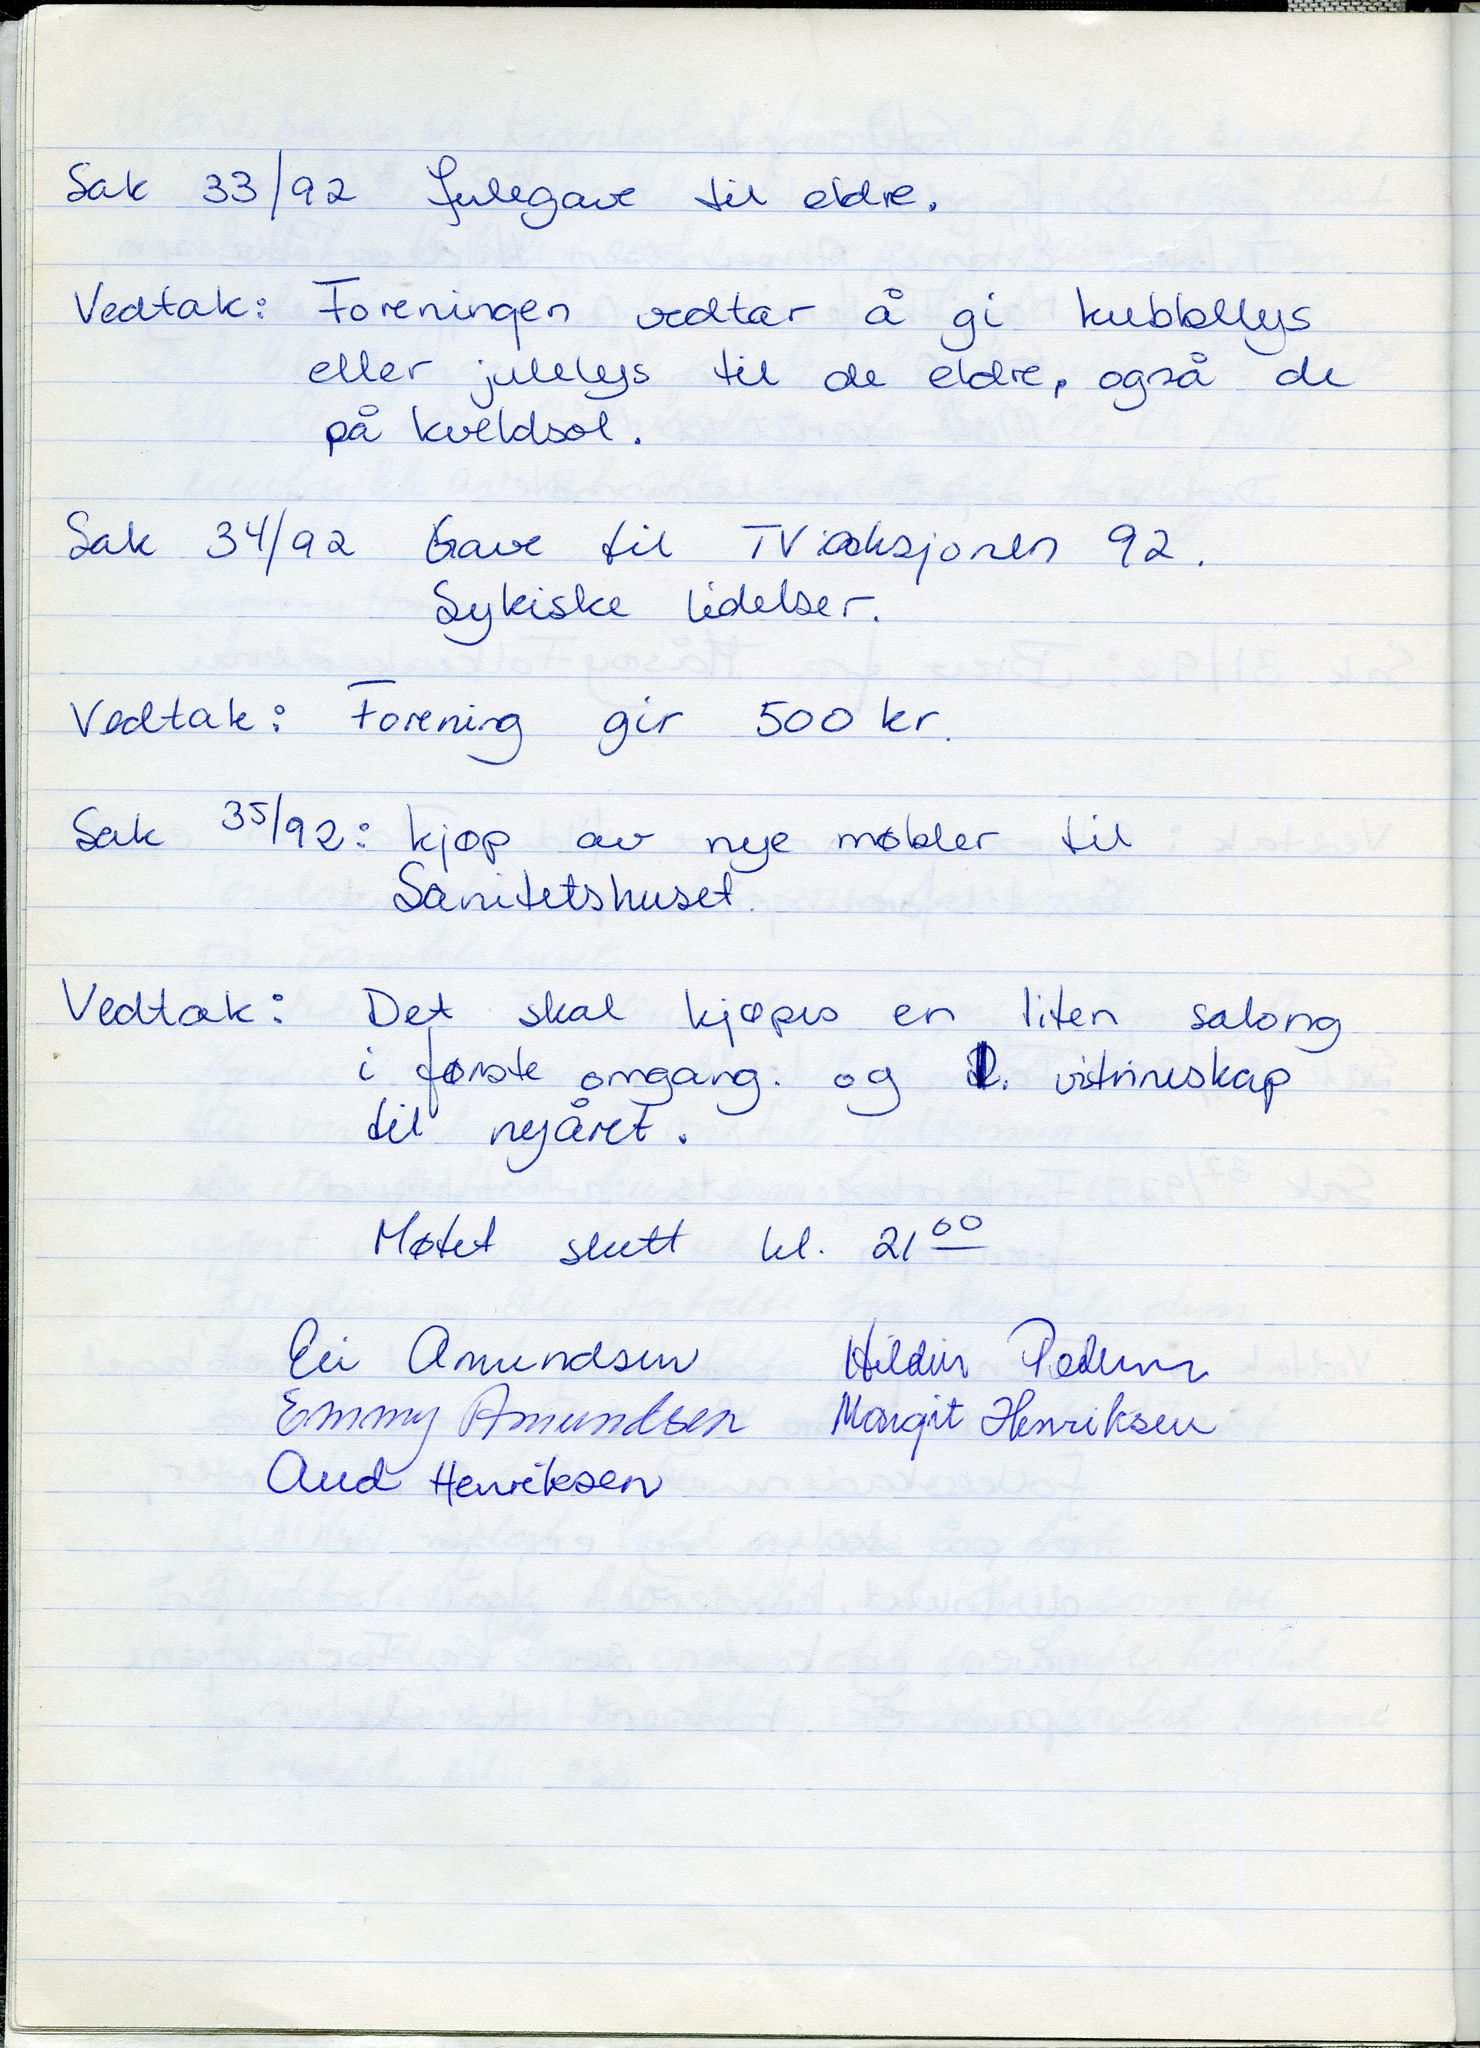 Sak 33/92 Julegave til eldre.
Vedtak: Foreningen vedtar å gi kubbellys
eller julelys til de eldre, også de
på kveldsol.
Sak 34/92 Gave til TVaksjonen 92.
Sykiske lidelser.
Vedtak: Forening gir 500 kr.
Sak 35/92: kjøp av nye møbler til
Sanitetshuset.
Vedtak: Det skal kjøpes en liten salong
i første omgang. og 1. vistrineskap
til nyåret.
Møtet slutt kl. 21 00
Eli Amundsen Hildur Pedersen
Emmy Amundsen Margit Henriksen
Aud Henriksen